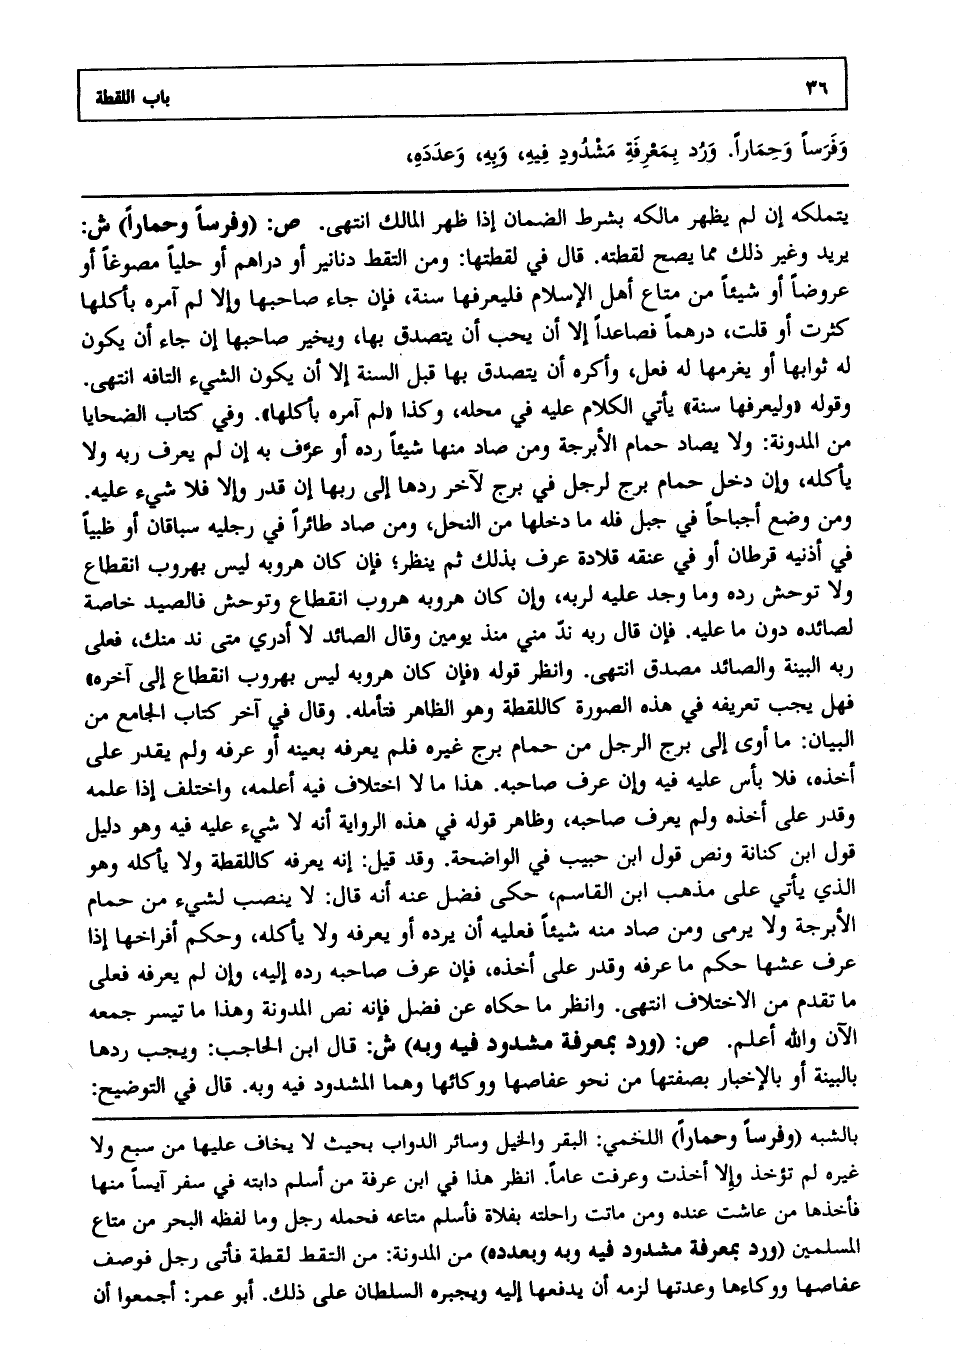 ٣٦
باب اللقطة
وَفَرَساً وَحِمَاراً. وَرُد بِمَعْرِفَةِ مَشْدُودٍ فِيهِ، وَبِهِ، وَعدَدَهِ،
يتملكه إن لم يظهر مالكه بشرط الضمان إذا ظهر المالك انتهى. ص: (وفرساً وحماراً) ش:
يريد وغير ذلك مما يصح لقطته. قال في لقطتها: ومن التقط دنانير أو دراهم أو حلياً مصوغاً أو
عروضاً أو شيئاً من متاع أهل الإسلام فليعرفها سنة، فإن جاء صاحبها وإلا لم آمره بأكلها
كثرت أو قلت، درهماً فصاعداً إلا أن يحب أن يتصدق بها، ويخير صاحبها إن جاء أن يكون
له ثوابها أو يغرمها له فعل، وأكره أن يتصدق بها قبل السنة إلا أن يكون الشيء التافه انتهى.
وقوله «وليعرفها سنة» يأتي الكلام عليه في محله، وكذا «لم آمره بأكلها». وفي كتاب الضحايا
من المدونة: ولا يصاد حمام الأبرجة ومن صاد منها شيئاً رده أو عرَّف به إن لم يعرف ربه ولا
يأكله، وإن دخل حمام برج لرجل في برج لآخر ردها إلى ربها إن قدر وإلا فلا شيء عليه.
ومن وضع أجباحاً في جبل فله ما دخلها من النحل، ومن صاد طائراً في رجليه سباقان أو ظبياً
في أذنيه قرطان أو في عنقه قلادة عرف بذلك ثم ينظر؛ فإن كان هروبه ليس بهروب انقطاع
ولا توحش رده وما وجد عليه لربه، وإن كان هروبه هروب انقطاع وتوحش فالصيد خاصة
لصائده دون ما عليه. فإن قال ربه ندّ مني منذ يومين وقال الصائد لا أدري متى ند منك، فعلى
ربه البينة والصائد مصدق انتهى. وانظر قوله «فإن كان هروبه ليس بهروب انقطاع إلى آخره»
فهل يجب تعريفه في هذه الصورة كاللقطة وهو الظاهر فتأمله. وقال في آخر كتاب الجامع من
البيان: ما أوى إلى برج الرجل من حمام برج غيره فلم يعرفه بعينه أو عرفه ولم يقدر على
أخذه، فلا بأس عليه فيه وإن عرف صاحبه. هذا ما لا اختلاف فيه أعلمه، واختلف إذا علمه
وقدر على أخذه ولم يعرف صاحبه، وظاهر قوله في هذه الرواية أنه لا شيء عليه فيه وهو دليل
قول ابن كنانة ونص قول ابن حبيب في الواضحة. وقد قيل: إنه يعرفه كاللقطة ولا يأكله وهو
الذي يأتي على مذهب ابن القاسم، حكى فضل عنه أنه قال: لا ينصب لشيء من حمام
الأبرجة ولا يرمى ومن صاد منه شيئاً فعليه أن يرده أو يعرفه ولا يأكله، وحكم أفراخها إذا
عرف عشها حكم ما عرفه وقدر على أخذه، فإن عرف صاحبه رده إليه، وإن لم يعرفه فعلى
ما تقدم من الاختلاف انتهى. وانظر ما حكاه عن فضل فإنه نص المدونة وهذا ما تيسر جمعه
الآن والله أعلم. ص: (ورد بمعرفة مشدود فيه وبه) ش: قال ابن الحاجب: ويجب ردها
بالبينة أو بالإخبار بصفتها من نحو عفاصها ووكائها وهما المشدود فيه وبه. قال في التوضيح:
بالشبه (وفرساً وحماراً) اللخمي: البقر والخيل وسائر الدواب بحيث لا يخاف عليها من سبع ولا
غيره لم تؤخذ وإلا أخذت وعرفت عاماً. انظر هذا في ابن عرفة من أسلم دابته في سفر آيساً منها
فأخذها من عاشت عنده ومن ماتت راحلته بفلاة فأسلم متاعه فحمله رجل وما لفظه البحر من متاع
المسلمين (ورد بمعرفة مشدود فيه وبه وبعدده) من المدونة: من التقط لقطة فأتى رجل فوصف
عفاصها ووكاءها وعدتها لزمه أن يدفعها إليه ويجبره السلطان على ذلك. أبو عمر: أجمعوا أن